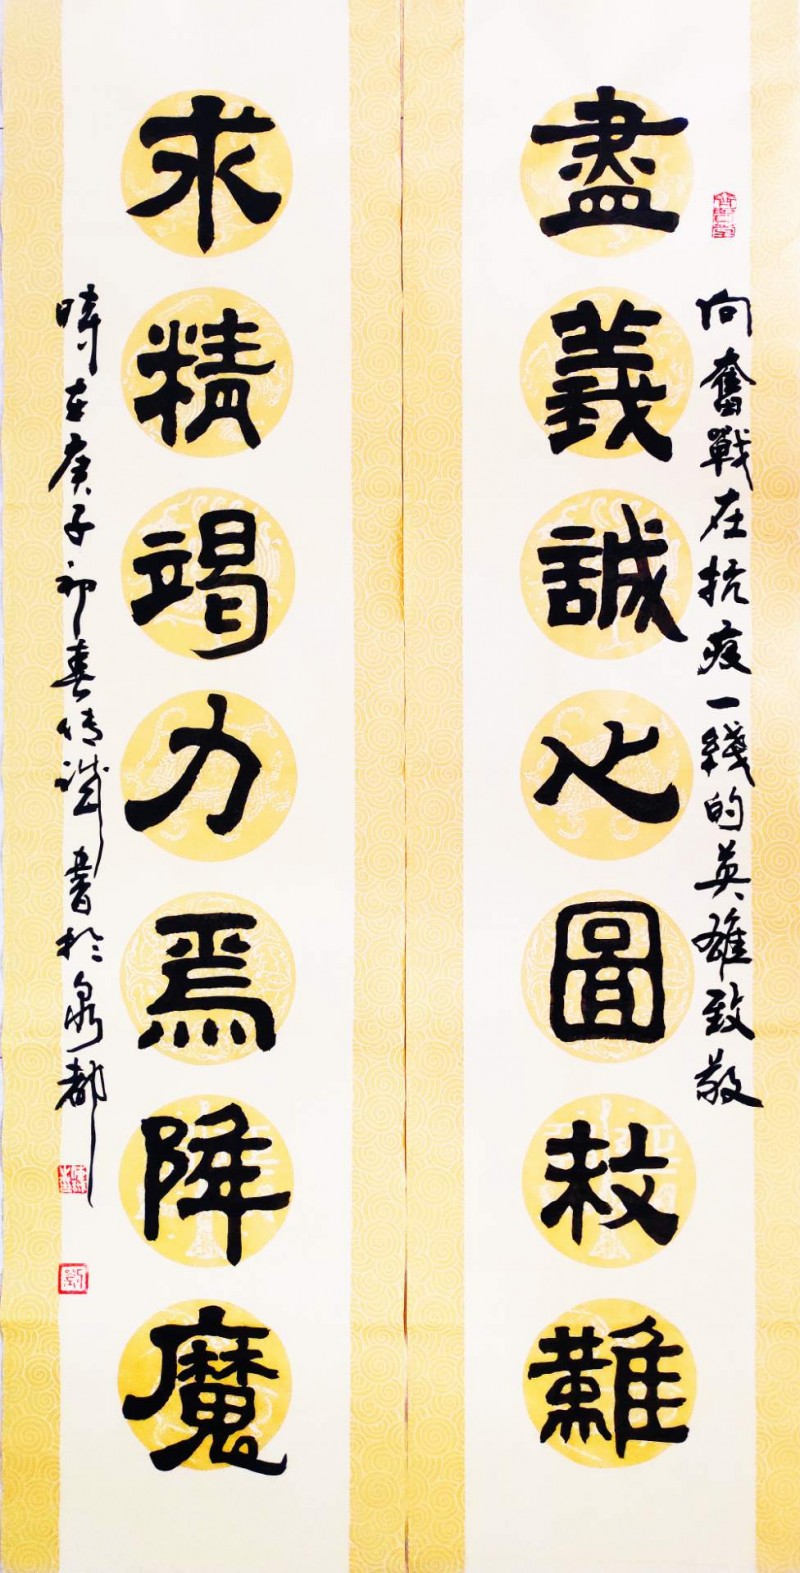 向奮戰在抗疫一綫的英雄致敬
盡義誠心圖救難
求精竭力焉降魔
時在庚子初春誠書於泉都